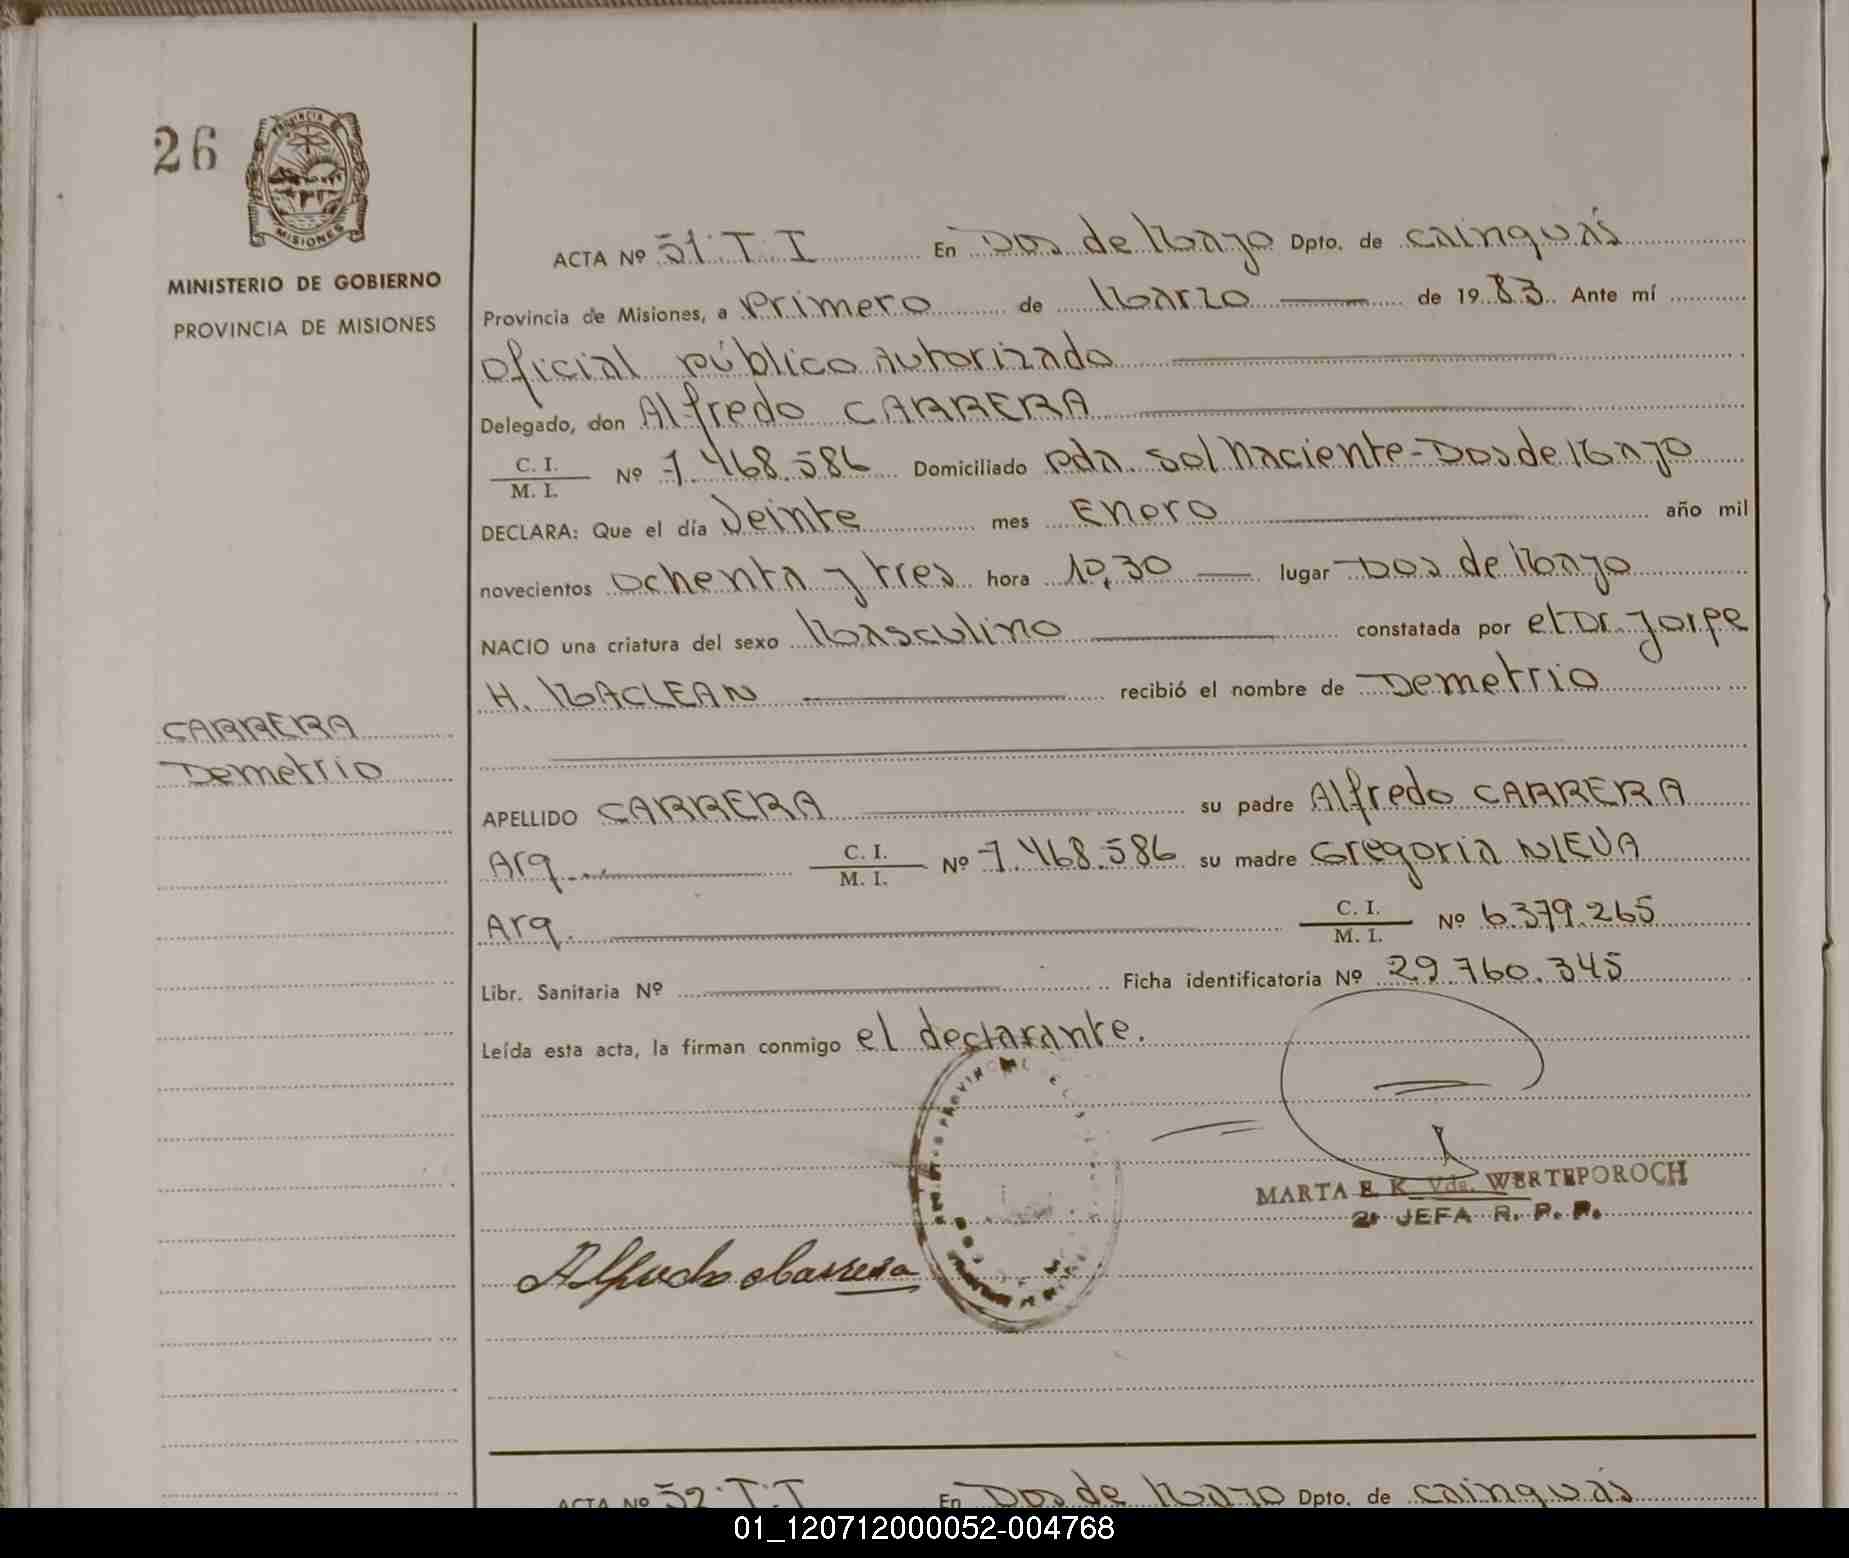 26
PROVINCIA
MISIONES
MINISTERIO DE GOBIERNO
PROVINCIA DE MISIONES
ACTA Nº 51·T·I En Dos de Mayo Dpto. de Cainguás
Provincia de Misiones, a Primero de Marzo de 1983. Ante mí
Oficial Público Autorizado
Delegado, don Alfredo CARRERA
C. I.
M. I.
Nº 7.468.586 Domiciliado Pda. Sol Naciente - Dos de Mayo
DECLARA: Que el día Veinte mes Enero año mil
novecientos ochenta y tres hora 10,30 lugar Dos de Mayo
NACIO una criatura del sexo Masculino constatada por el Dr. Jorge
H. MACLEAN recibió el nombre de Demetrio
CARRERA
Demetrio
APELLIDO CARRERA su padre Alfredo CARRERA
Arq. C. I. / M. I. Nº 7.468.586 su madre Gregoria NIEVA
Arq. C. I. / M. I. Nº 6.379.265
Libr. Sanitaria Nº Ficha identificatoria Nº 29.760.345
Leída esta acta, la firman conmigo el declarante.
MARTA E. K. Vda. WERTEPOROCH
2ª JEFA R. P. P.
Alfredo Carrera
ACTA Nº 52·T·I En Dos de Mayo Dpto. de Cainguás
01_120712000052-004768